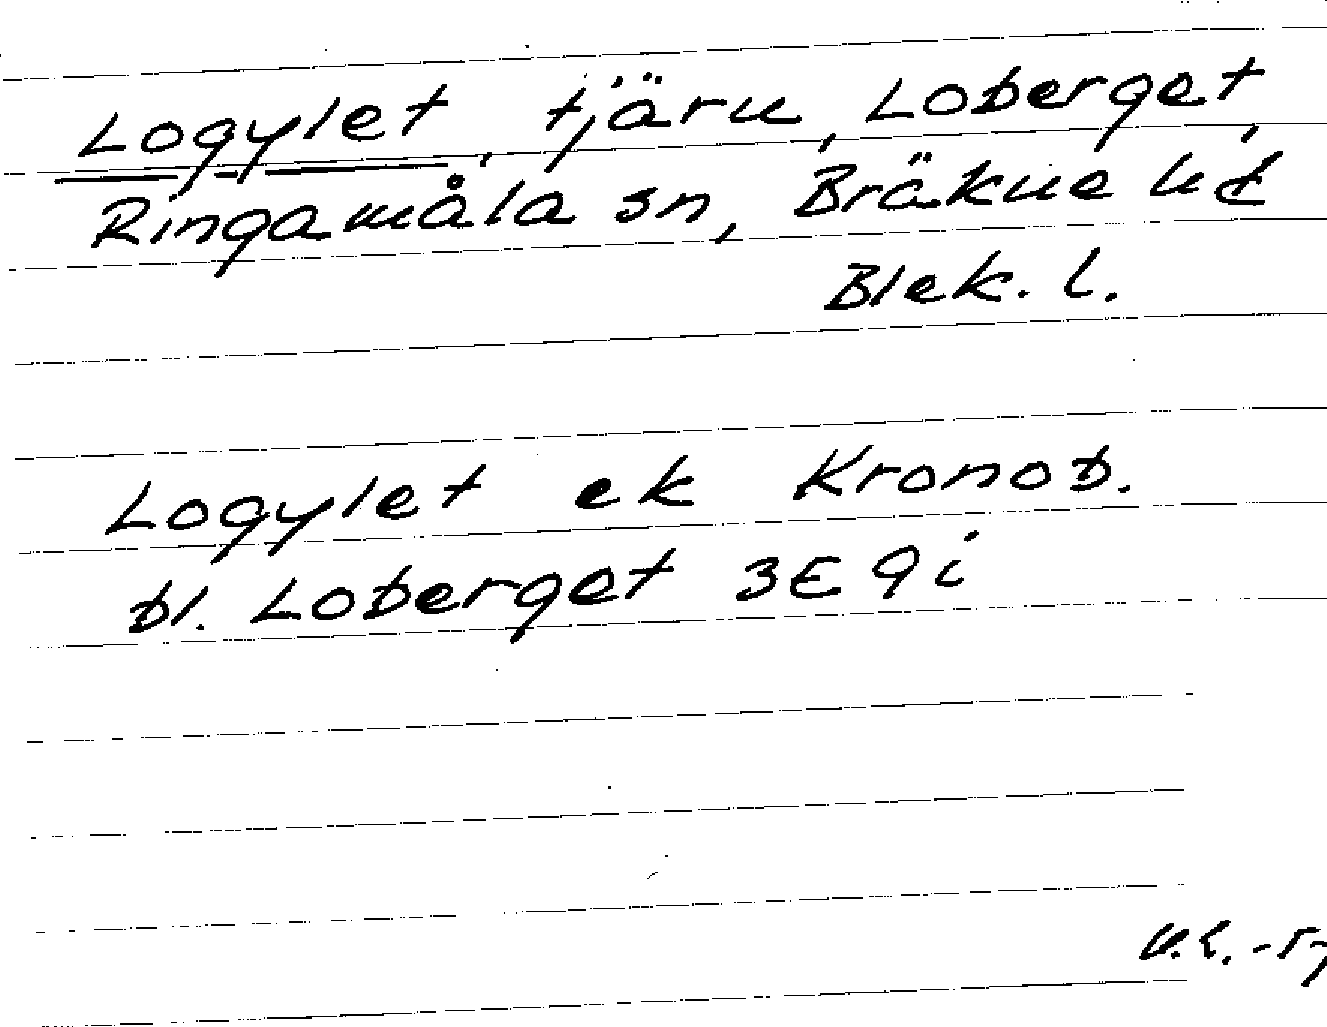 Logylet, tjärn, Loberget,
Ringamåla sn, Bräkne hd
Blek. l.
Logylet ek Kronob.
bl. Loberget 3E9i